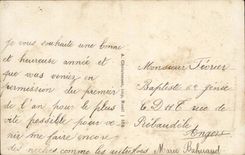 je vous souhaite une bonne
et heureuse année et
que vous veniez en
permission du premier
de l'an pour le plus
vite possible pour ve
nir me faire encore
des niches comme les autrefois
Marie
Monsieur Février
Baptiste 6e Génie
rue de
Angers